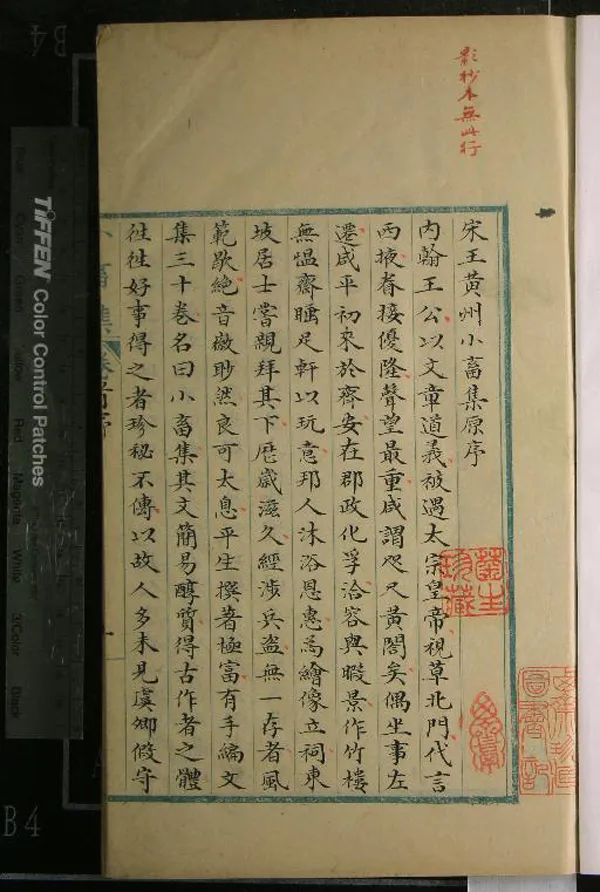 影抄本無此行
宋王黃州小畜集原序
內翰王公以文章道義被遇太宗皇帝視草北門代言
西掖眷接優隆聲望最重咸謂咫尺黃閤矣偶坐事左
遷咸平初來於齊安在郡政化孚洽容與暇景作竹樓
無愠齋睡足軒以玩意邦人沐浴恩惠為繪像立祠東
坡居士嘗親拜其下歷歲滋久經涉兵盜無一存者風
範歇絶音徽眇然良可太息平生撰著極富有手編文
集三十卷名曰小畜集其文簡易醇質得古作者之體
徃徃好事得之者珍秘不傳以故人多未見虞卿假守
小畜集
序
珍藏
TIFFEN Color Control Patches
Red
Magenta
White
3/Color
Black
B4
B4